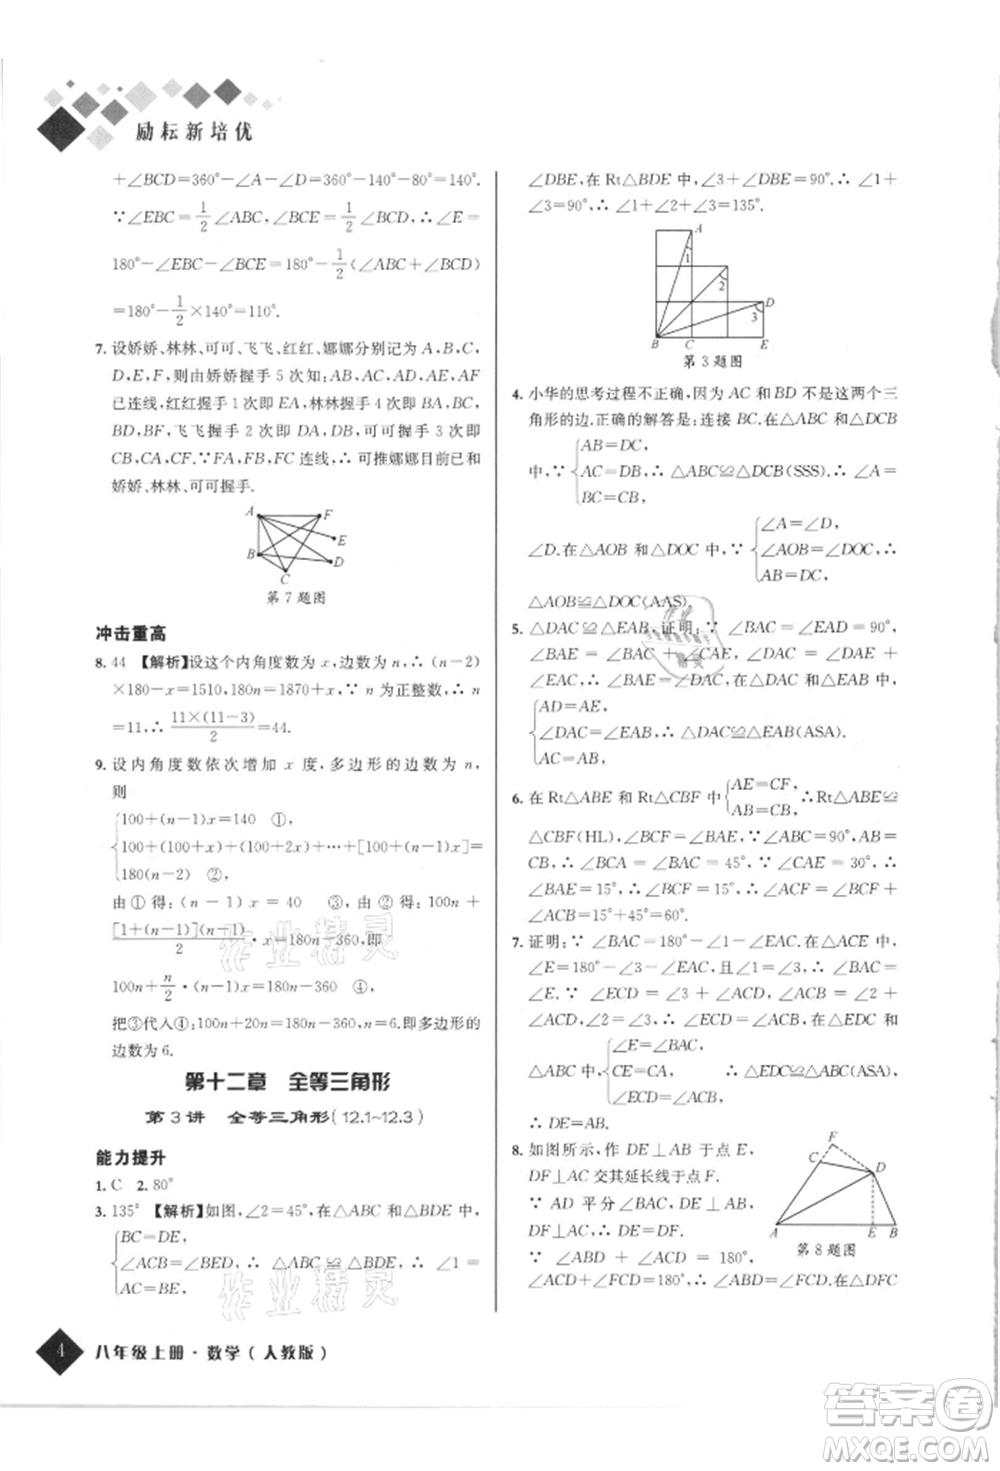 励耘新培优
+∠BCD=360°-∠A-∠D=360°-140°-80°=140°.
∵∠EBC=1/2∠ABC,∠BCE=1/2∠BCD,∴∠E=
180°-∠EBC-∠BCE=180°-1/2(∠ABC+∠BCD)
=180°-1/2×140°=110°.
7. 设娇娇、林林、可可、飞飞、红红、娜娜分别记为 A,B,C,
D,E,F,则由娇娇握手 5 次知:AB,AC,AD,AE,AF
已连线,红红握手 1 次即 EA,林林握手 4 次即 BA,
BC,BD,BF,飞飞握手 2 次即 DA,DB,可可握手 3 次即
CB,CA,CF.∵FA、FB、FC 连线,∴可推娜娜目前已和
娇娇、林林、可可握手.
A
F
E
B
D
C
第 7 题图
冲击重高
8. 44 【解析】设这个内角度数为 x,边数为 n,∴(n-2)
×180-x=1510,180n=1870+x,∵n 为正整数,∴n
=11,∴11×(11-3)/2=44.
9. 设内角度数依次增加 x 度,多边形的边数为 n,
则
100+(n-1)x=140 ①,
100+(100+x)+(100+2x)+…+[100+(n-1)x]=
180(n-2) ②,
由①得:(n-1)x=40 ③,由②得:100n+
[1+(n-1)](n-1)/2·x=180n-360,即
100n+n/2·(n-1)x=180n-360 ④,
把③代入④:100n+20n=180n-360,n=6.即多边形的
边数为 6.
第十二章 全等三角形
第 3 讲 全等三角形(12.1~12.3)
能力提升
1. C 2. 80°
3. 135° 【解析】如图,∠2=45°,在△ABC 和△BDE 中,
BC=DE,
∠ACB=∠BED,∴△ABC≌△BDE,∴∠1=
AC=BE,
∠DBE,在 Rt△BDE 中,∠3+∠DBE=90°,∴∠1+
∠3=90°,∴∠1+∠2+∠3=135°.
A
1
2
D
3
B C E
第 3 题图
4. 小华的思考过程不正确,因为 AC 和 BD 不是这两个三
角形的边.正确的解答是:连接 BC.在△ABC 和△DCB
AB=DC,
中,∵ AC=DB,∴△ABC≌△DCB(SSS).∴∠A=
BC=CB,
∠A=∠D,
∠D.在△AOB 和△DOC 中,∵ ∠AOB=∠DOC,∴
AB=DC,
△AOB≌△DOC(AAS).
5. △DAC≌△EAB,证明:∵∠BAC=∠EAD=90°,∴
∠EAD+∠CAE=∠BAC+∠CAE,即∠DAC=
∠EAB.∵在△DAC 和△EAB 中,
AD=AE,
∠DAC=∠EAB,∴△DAC≌△EAB(ASA).
AC=AB,
6. 在 Rt△ABE 和 Rt△CBF 中 AE=CF, ∴Rt△ABE≌
AB=CB,
△CBF(HL),∠BCF=∠BAE,∵∠ABC=90°,AB=
CB,∴∠BCA=∠BAC=45°,∵∠CAE=30°,∴
∠BAE=15°,∴∠BCF=∠BAE=15°,∴∠BCF+
∠ACB=15°+45°=60°.
7. 证明:∵∠BAC=180°-∠1-∠EAC.在△ACE 中,
∠E=180°-∠3-∠EAC,∠1=∠3,∴∠BAC=
∠E.∵∠ECD=∠3+∠ACD,∠ACB=∠2+
∠ACD,∠2=∠3,∴∠ECD=∠ACB.在△EDC 和
∠E=∠BAC,
△ABC 中, CE=CA, ∴△EDC≌△ABC(ASA),
∠ECD=∠ACB,
∴DE=AB.
8. 如图所示,作 DE⊥AB 于点 E,
DF⊥AC 交其延长线于点 F.
∵AD 平分∠BAC,DE⊥AB,
DF⊥AC,∴DE=DF.
∵∠ABD+∠ACD=180°,
∠ACD+∠FCD=180°,∴∠ABD=∠FCD.在△DFC
F
C
D
A
E
B
第 8 题图
作业精灵
作业精灵
4
八年级上册·数学(人教版)
答案圈
MXQE.COM